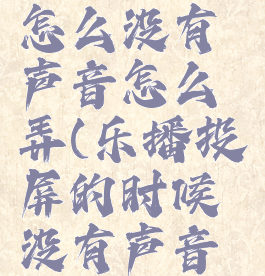 怎么没有
声音怎么
弄(乐播投
屏的时候
没有声音